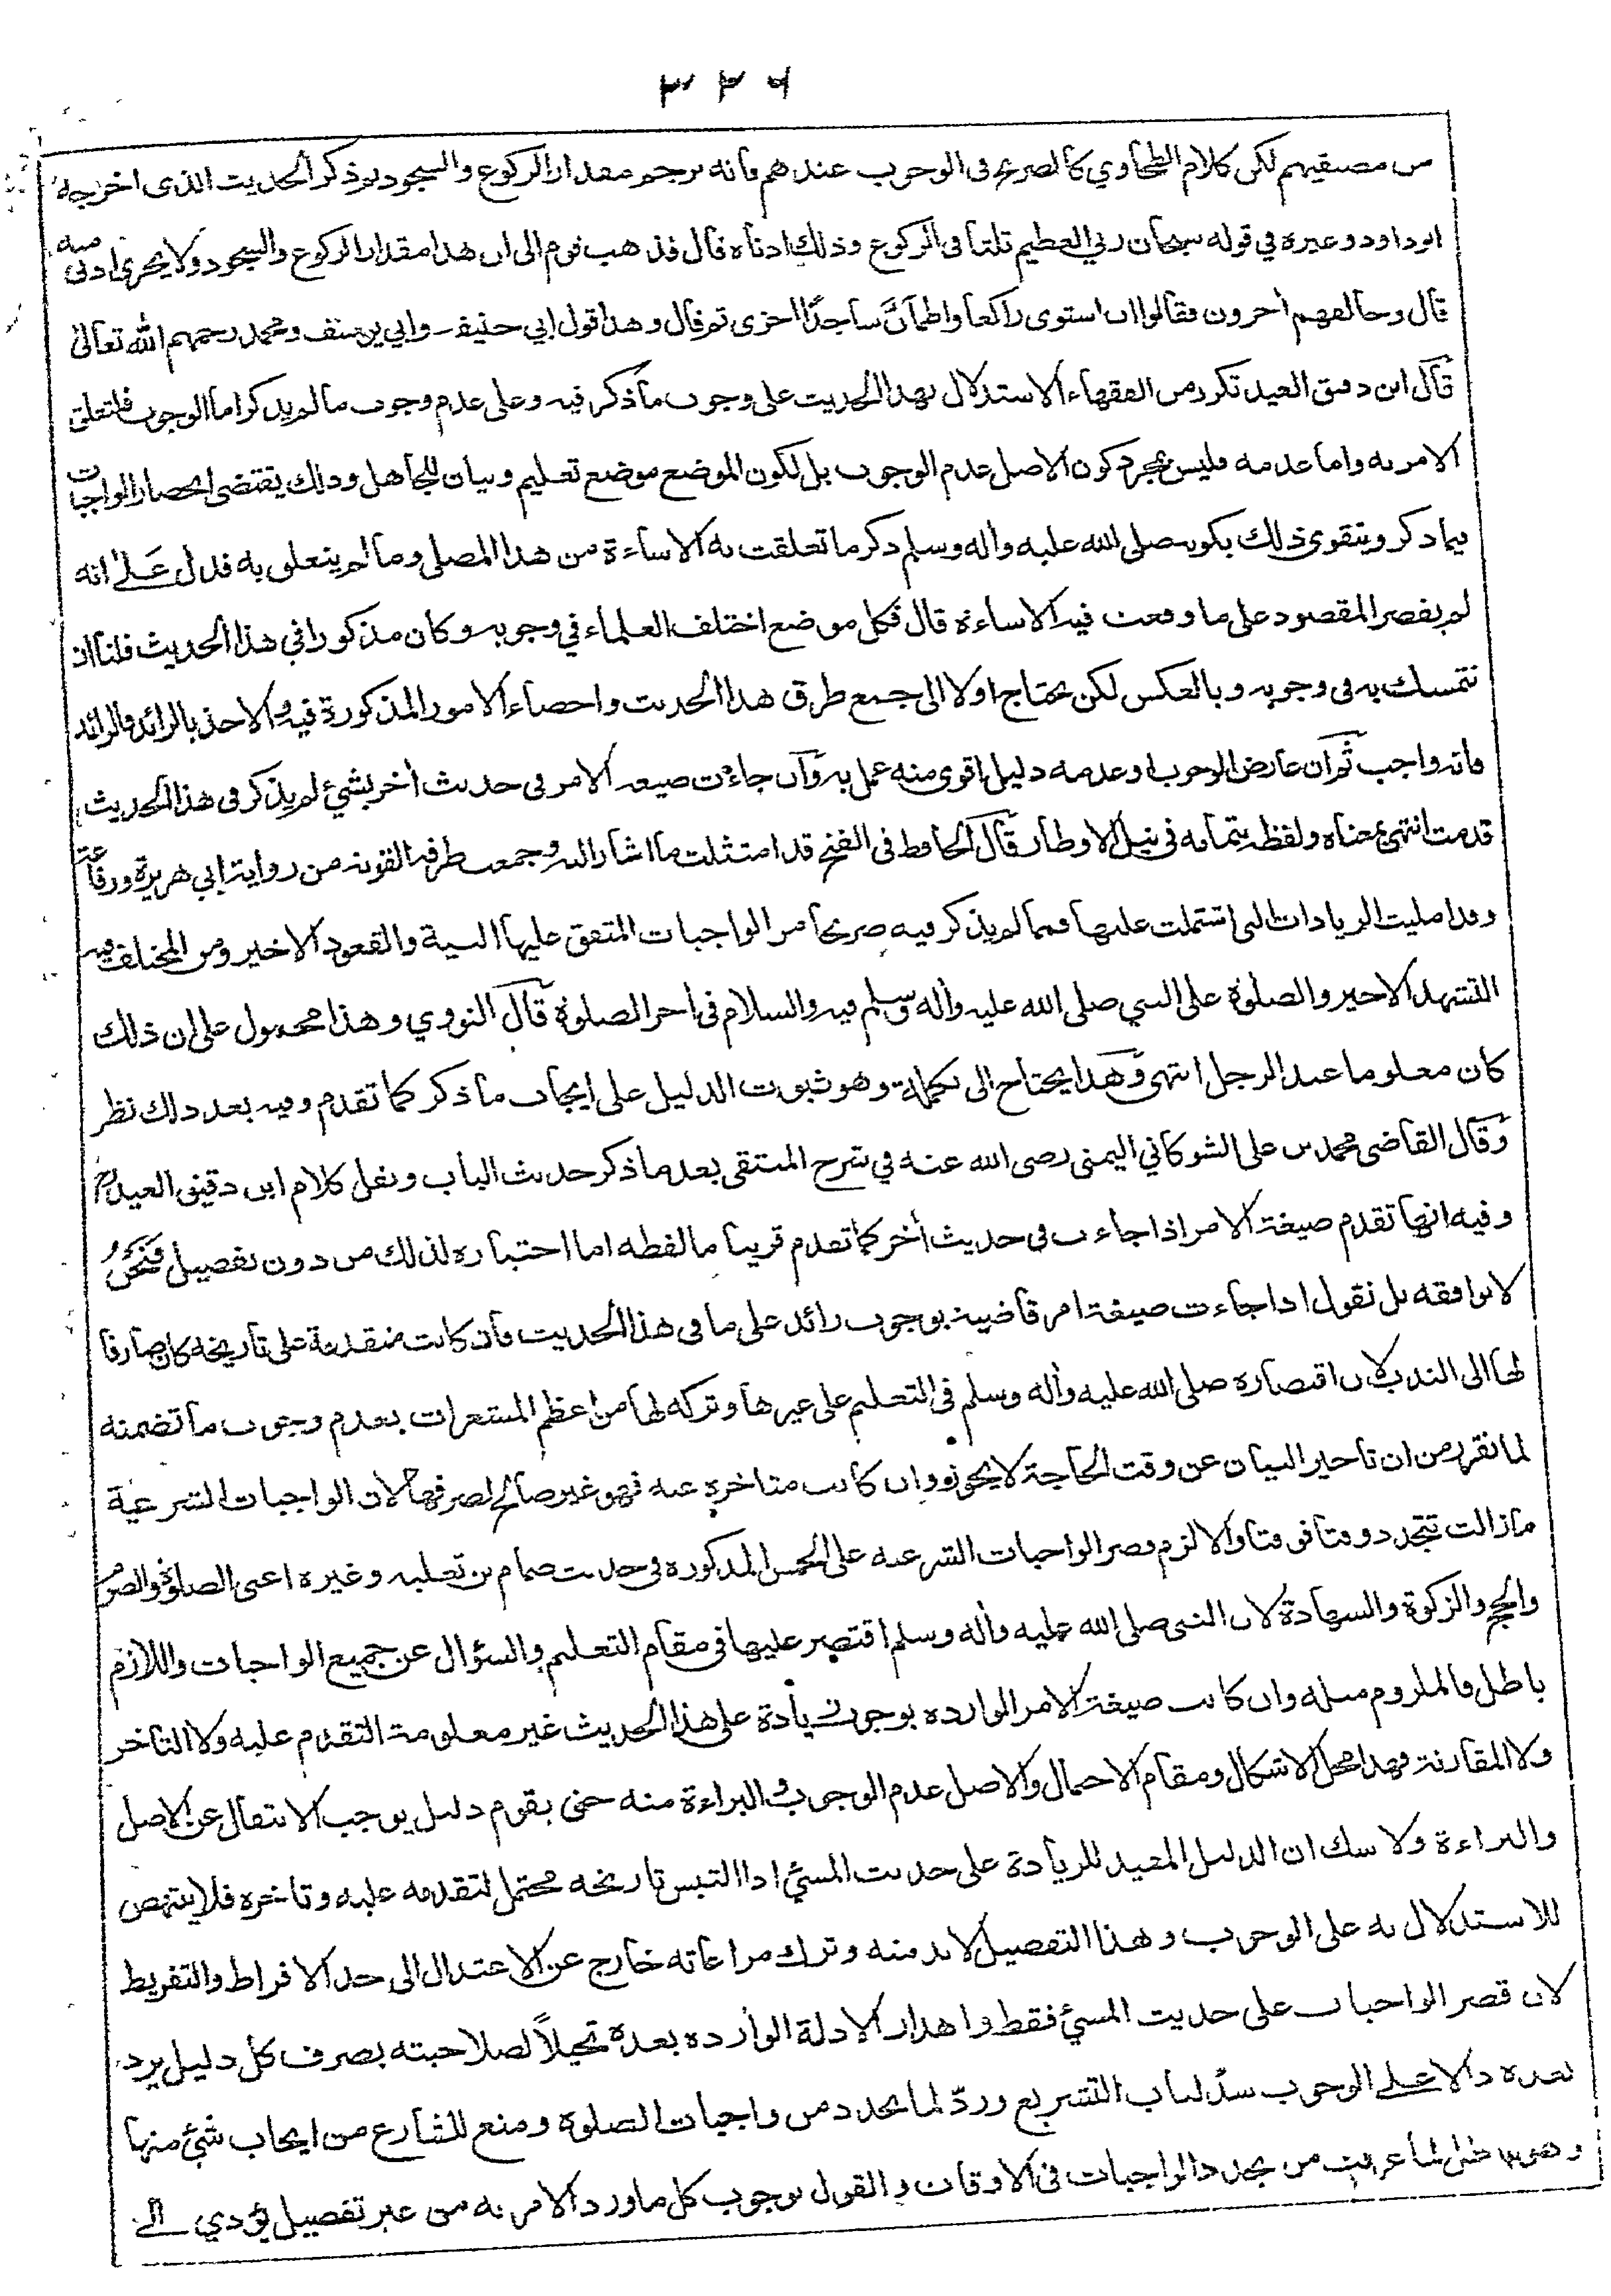 ٣٢٦
من مصنفيهم لكن كلام الطحاوي كالصريح في الوجوب عندهم فأنه ترجم مقدار الركوع والسجود ثم ذكر الحديث الذى اخرجه
ابو داود وغيره في قوله سبحان ربي العظيم ثلثا في الركوع وذلك ادناه قال فذهب قوم الى ان هذا مقدار الركوع والسجود ولا يجزى ادنى منه
قال وخالفهم أخرون فقالوا ان استوى راكعا واطمأنَّ ساجدًا اجزى ثم قال وهذا قول ابي حنيفة وابي يوسف ومحمد رحمهم الله تعالى
قال ابن دقيق العيد تكرر من الفقهاء الاستدلال بهذا الحديث على وجوب ما ذكر فيه وعلى عدم وجوب ما لم يذكر اما الوجوب فلتعلق
الامر به واما عدمه فليس بمجرد كون الاصل عدم الوجوب بل لكون الموضع موضع تعليم وبيان للجاهل وذلك يقتضى انحصار الواجبات
فيما ذكر ويتقوى ذلك بكونه صلى الله عليه وأله وسلم ذكر ما تعلقت به الاساءة من هذا المصلى وما لم يتعلق به فدل على انه
لم يقصر المقصود على ما وقعت فيه الاساءة قال فكل موضع اختلف العلماء في وجوبه وكان مذكورا في هذا الحديث فلنا ان
نتمسك به في وجوبه وبالعكس لكن يحتاج اولا الى جمع طرق هذا الحديث واحصاء الامور المذكورة فيه والاخذ بالزائد فالزائد
فأنه واجب ثم ان عارض الوجوب او عدمه دليل اقوى منه عمل به وان جاءت صيغة الامر في حديث أخر بشيئ لم يذكر في هذا الحديث
قدمت انتهى بمعناه ولفظه بتمامه في نيل الاوطار قال الحافظ في الفتح قد امتثلت ما اشار اليه وجمعت طرقه القوية من رواية ابي هريرة ورفاعة
وقد امليت الزيادات التى اشتملت عليها فمما لم يذكر فيه صريحا من الواجبات المتفق عليها النية والقعود الاخير ومن المختلف فيه
التشهد الاخير والصلوة على النبي صلى الله عليه وأله وسلم فيه والسلام في أخر الصلوة قال النووي وهذا محمول على ان ذلك
كان معلوما عند الرجل انتهى وهذا يحتاج الى تكملة وهو ثبوت الدليل على ايجاب ما ذكر كما تقدم وفيه بعد ذلك نظر
وقال القاضى محمد بن على الشوكاني اليمنى رضى الله عنه في شرح المنتقى بعد ما ذكر حديث الباب ونقل كلام ابن دقيق العيد
وفيه انها تقدم صيغة الامر اذا جاءت في حديث أخر كما تقدم قريبا ما لفظه اما اختياره لذلك من دون تفصيل فنحن
لا نوافقه بل نقول اذا جاءت صيغة امر قاضية بوجوب زائد على ما في هذا الحديث فان كانت متقدمة على تاريخه كان صارفا
لها الى الندب لان اقتصاره صلى الله عليه وأله وسلم في التعليم على غيرها وتركه لها من اعظم المشعرات بعدم وجوب ما تضمنه
لما تقرر من ان تاخير البيان عن وقت الحاجة لا يجوز وان كانت متاخرة عنه فهو غير صالح لصرفها لان الواجبات الشرعية
ما زالت تتجدد وقتا فوقتا والا لزم قصر الواجبات الشرعية على الخمس المذكورة في حديث ضمام بن ثعلبة وغيره اعنى الصلوة والصوم
والحج والزكوة والشهادة لان النبى صلى الله عليه وأله وسلم اقتصر عليها في مقام التعليم والسؤال عن جميع الواجبات واللازم
باطل فالملزوم مثله وان كانت صيغة الامر الواردة بوجوب زيادة على هذا الحديث غير معلومة التقدم عليه ولا التأخر
ولا المقارنة فهذا محل الاشكال ومقام الاحتمال والاصل عدم الوجوب والبراءة منه حتى يقوم دليل يوجب الانتقال عن الاصل
والبراءة ولا شك ان الدليل المفيد للزيادة على حديث المسيئ اذا التبس تاريخه محتمل لتقدمه عليه وتاخره فلا ينتهض
للاستدلال به على الوجوب وهذا التفصيل لا بد منه وترك مراعاته خارج عن الاعتدال الى حد الافراط والتفريط
لان قصر الواجبات على حديث المسيئ فقط واهدار الادلة الواردة بعده تخيلاً لصلاحيته بصرف كل دليل يرد
بعده دالا على الوجوب سدّ لباب التشريع وردّ لما تجدد من واجبات الصلوة ومنع للشارع من ايجاب شيئ منها
وهو باطل لما عرفت من تجدد الواجبات في الاوقات والقول بوجوب كل ما ورد الامر به من غير تفصيل يؤدي الى